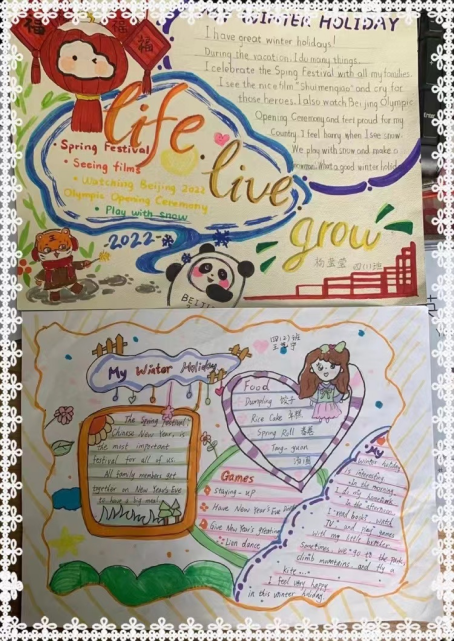 WINTER HOLIDAY
I have great winter holidays!
During the vacation. I do many things.
I celebrate the Sping Festival with all my families.
I see the nice film "Shuimenqiao" and cry for
those heroes. I also watch Beijing Olympic
Opening Ceremony and feel proud for my
Country. I feel happy when I see snow.
We play with snow and make a
What a good winter holiday
福
福
福
life
live
grow
• Spring Festival
• Seeing films
• Watching Beijing 2022
Olympic Opening Ceremony
• Play with snow
-2022-
BEIJING
四(1)班
四(2)班
My Winter Holiday
The Spring Festival
Chinese New Year, is
the most important
festival for all of us.
All family members get
together on New Year's Eve
to have a big meal.
Food
Dumpling 饺子
Rice Cake 年糕
Spring Roll 春卷
Tang-yuan
汤圆
Games
Staying-up
Have New Year's Eve
Give New Year's greeting
Lion dance
My
winter holiday
is interesting
In the morning,
I do my homework
In the afternoon
I read books, watch
TV and play games
with my little brother
Sometimes we go to the park,
climb mountains and fly a
kite...
I feel very happy
in this winter holiday.